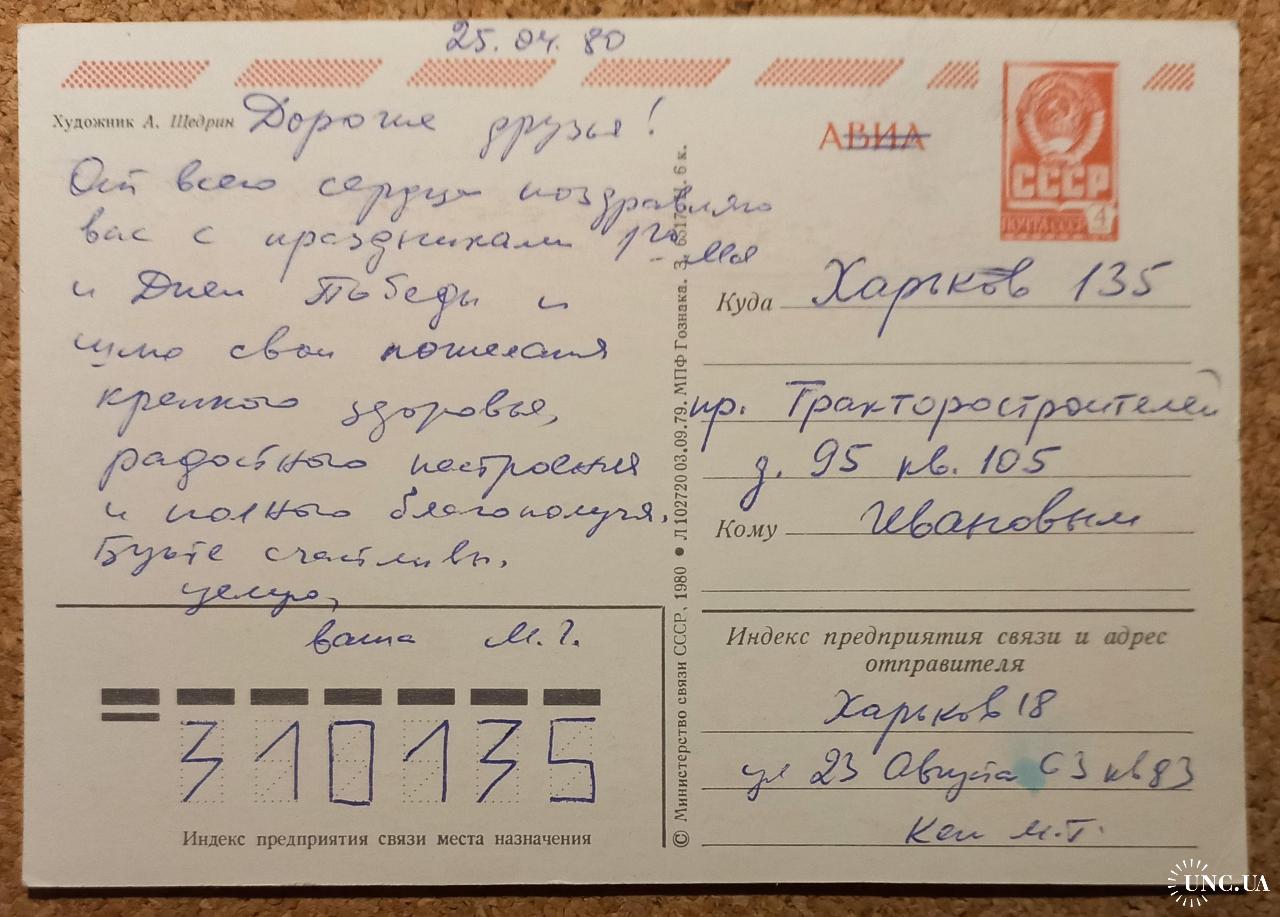 25.04.80
Художник А. Щедрин
Дорогие друзья!
От всего сердца поздравляю
вас с праздниками 1го мая
и Днем Победы и
шлю свои пожелания
крепкого здоровья,
радостного настроения
и полного благополучия.
Будьте счастливы.
целую,
ваша М.Г.
310135
Индекс предприятия связи места назначения
© Министерство связи СССР, 1980 • Л 102720 03.09.79. МПФ Гознака. З. 6 к.
АВИА
СССР
ПОЧТА СССР 4
Куда Харьков 135
пр. Тракторостроителей
д. 95 кв. 105
Кому Ивановым
Индекс предприятия связи и адрес
отправителя
Харьков 18
ул 23 Августа 63 кв 83
М.Г.
UNC.UA